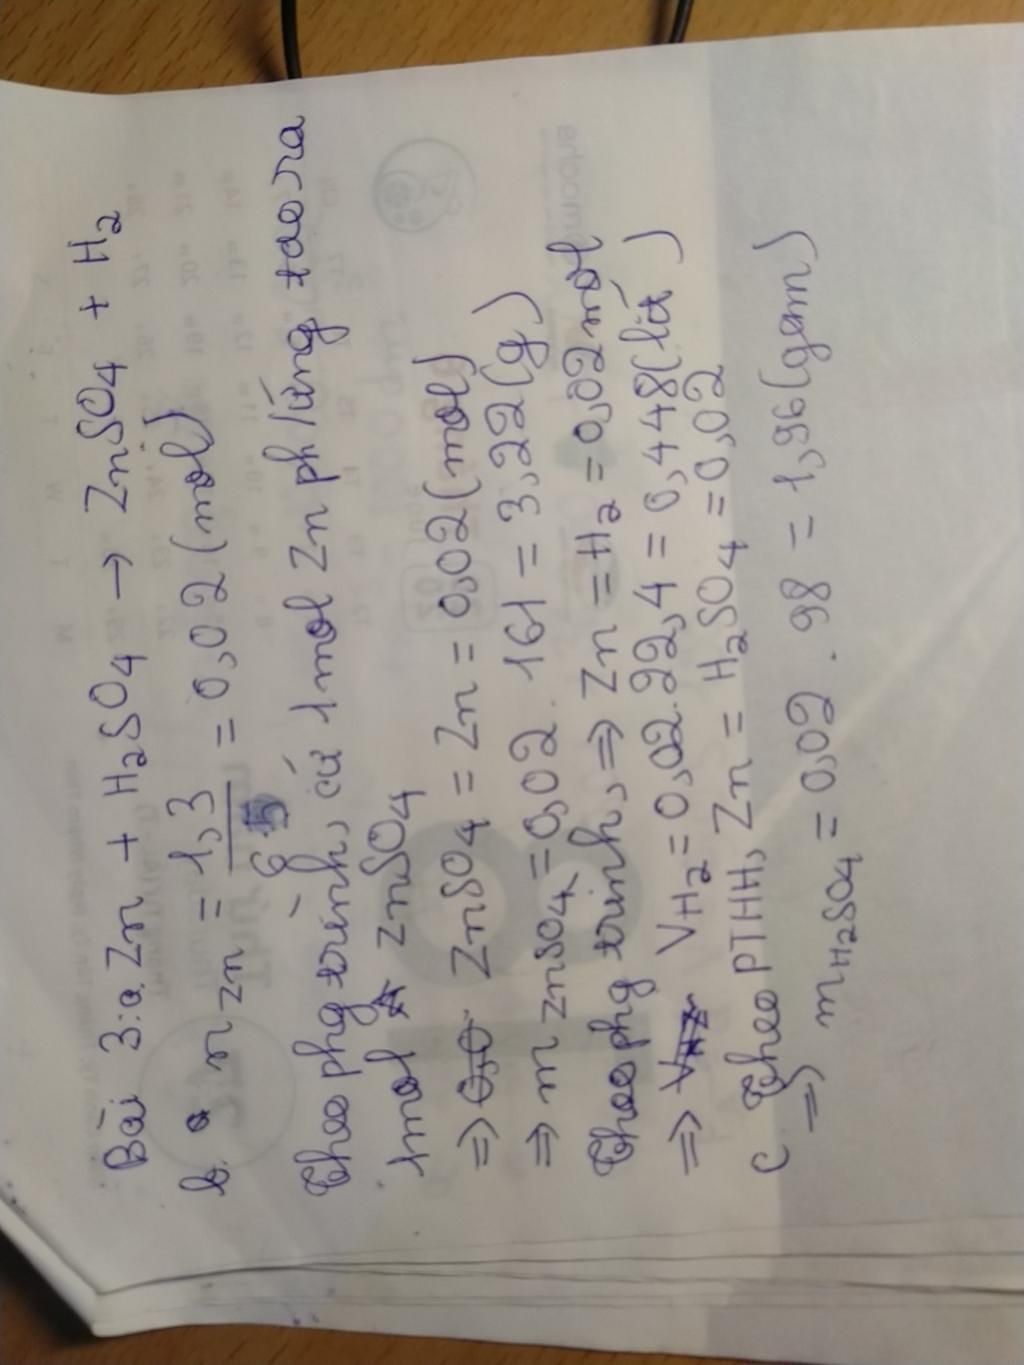 Bài 3:a Zn + H₂SO₄ → ZnSO₄ + H₂
b. n Zn = 1,3 / 65 = 0,02 (mol)
Theo phg trình, cứ 1 mol Zn ph/ứng tạo ra
1 mol ZnSO₄
=> ZnSO₄ = Zn = 0,02 (mol)
=> m ZnSO₄ = 0,02 . 161 = 3,22 (g)
Theo phg trình, => Zn = H₂ = 0,02 mol
=> VH₂ = 0,02.22,4 = 0,448 (lít)
c Theo PTHH, Zn = H₂SO₄ = 0,02
=> mH₂SO₄ = 0,02 . 98 = 1,96 (gam)